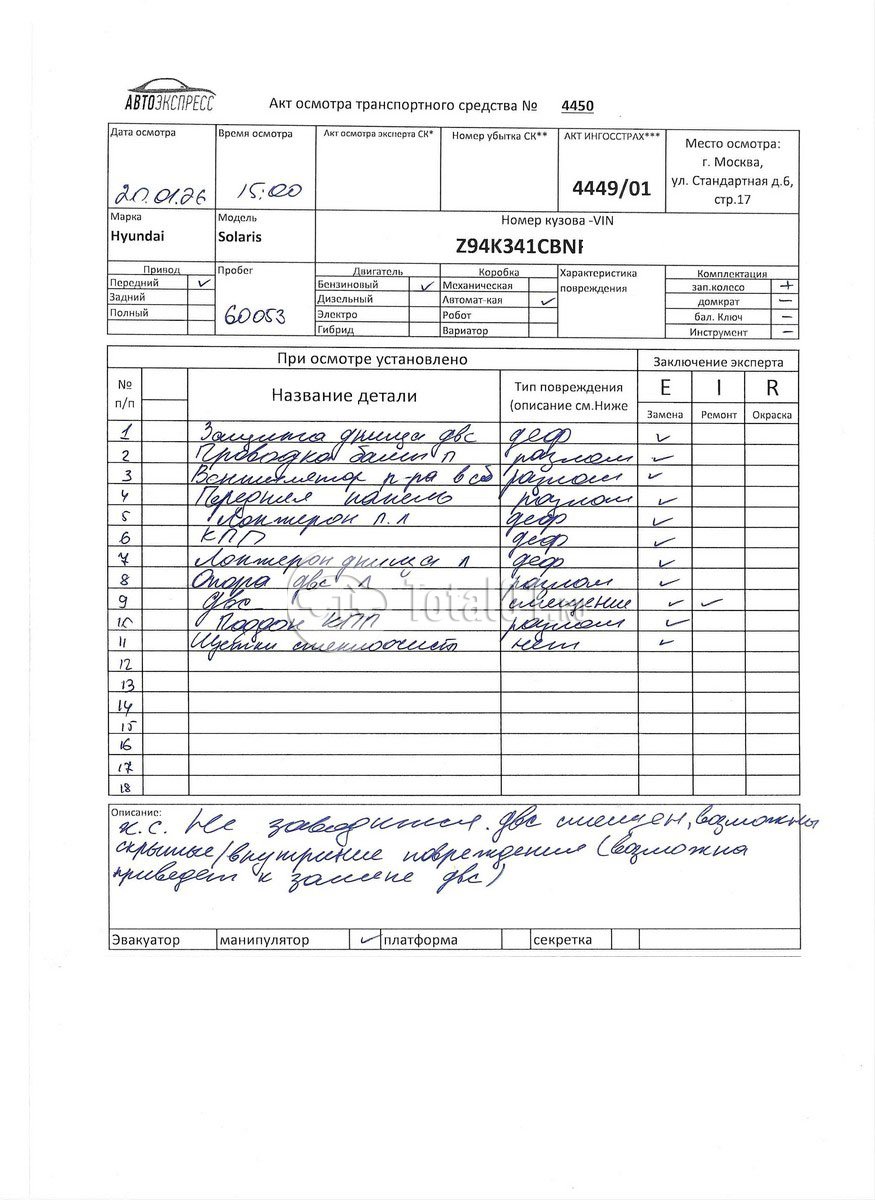 АВТОЭКСПРЕСС
Акт осмотра транспортного средства № 4450
Дата осмотра
Время осмотра
Акт осмотра эксперта СК*
Номер убытка СК**
АКТ ИНГОССТРАХ***
Место осмотра:
г. Москва,
ул. Стандартная д.6,
стр.17
20.01.26
15:00
4449/01
Марка
Модель
Номер кузова -VIN
Hyundai
Solaris
Z94K341CBN
Привод
Пробег
Двигатель
Коробка
Характеристика
повреждения
Комплектация
Передний ✓
Бензиновый ✓
Механическая
зап.колесо +
Задний
Дизельный
Автомат-кая ✓
домкрат –
Полный
60053
Электро
Робот
бал. Ключ –
Гибрид
Вариатор
Инструмент –
При осмотре установлено
Заключение эксперта
№
п/п
Название детали
Тип повреждения
(описание см.Ниже
E I R
Замена Ремонт Окраска
1 Защита днища двс деф ✓
2 Проводка п разлом ✓
3 Вентилятор р-ра в сб разлом ✓
4 Передняя панель разлом ✓
5 Лонжерон п.л деф ✓
6 КПП деф ✓
7 Лонжерон днища л деф ✓
8 Опора двс л разлом ✓
9 двс смещение ✓ ✓
10 Поддон КПП разлом ✓
11 Щетки стеклоочист нет ✓
12
13
14
15
16
17
18
Описание:
х.с. Не заводится. двс смещен, возможны
скрытые/внутрение повреждения (возможна
приведет к замене двс)
Эвакуатор манипулятор ✓ платформа секретка